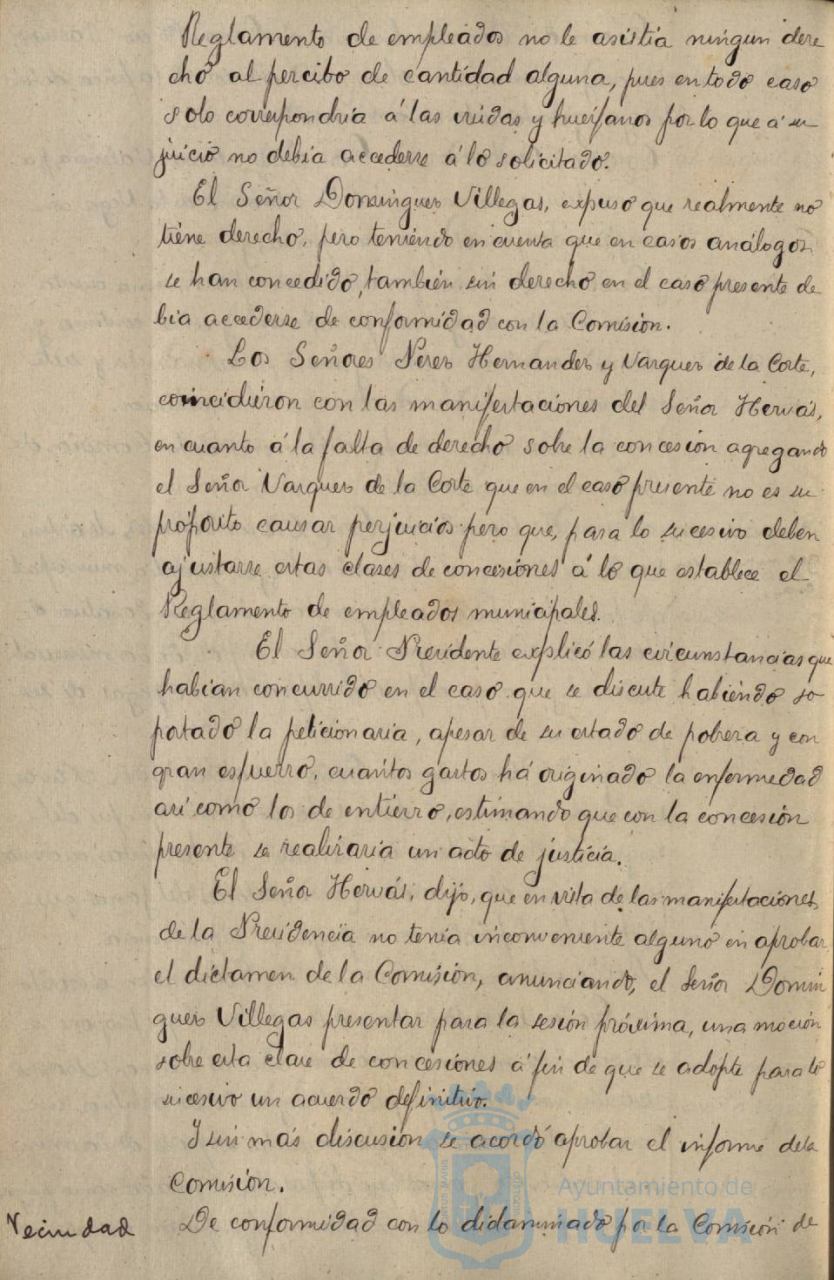 Reglamento de empleados no le asistia ningun dere
cho al percibo de cantidad alguna, pues en todo caso
solo correspondria á las viudas y huerfanos por lo que á su
juicio no debia accederse á lo solicitado.
El Señor Dominguez Villegas, expuso que realmente no
tiene derecho, pero teniendo en cuenta que en casos análogos
se han concedido, también sin derecho en el caso presente de
bia accederse de conformidad con la Comision.
Los Señores Perez Hernandez y Vazquez de la Corte,
coincidieron con las manifestaciones del Señor Hervás,
en cuanto á la falta de derecho sobre la concesión agregando
el Señor Vazquez de la Corte que en el caso presente no es su
próposito causar perjuicios pero que, para lo sucesivo deben
ajustarse estas clases de concesiones á lo que establece el
Reglamento de empleados municipales.
El Señor Presidente explicó las circunstancias que
habian concurrido en el caso que se discute habiendo so
portado la peticionaria, apesar de su estado de pobreza y con
gran esfuerzo, cuantos gastos há originado la enfermedad
asi como los de entierro, estimando que con la concesión
presente se realizaria un acto de justicia.
El Señor Hervás, dijo, que en vista de las manifestaciones
de la Presidencia no tenia inconveniente alguno en aprobar
el dictamen de la Comisión, anunciando, el Señor Domin
guez Villegas presentar para la sesión próxima, una moción
sobre esta clase de concesiones á fin de que se adopte para lo
sucesivo un acuerdo definitivo.
Y sin más discusion se acordó aprobar el informe dela
Comisión.
Vecindad
De conformidad con lo dictaminado por la Comisión de
Ayuntamiento de
HUELVA